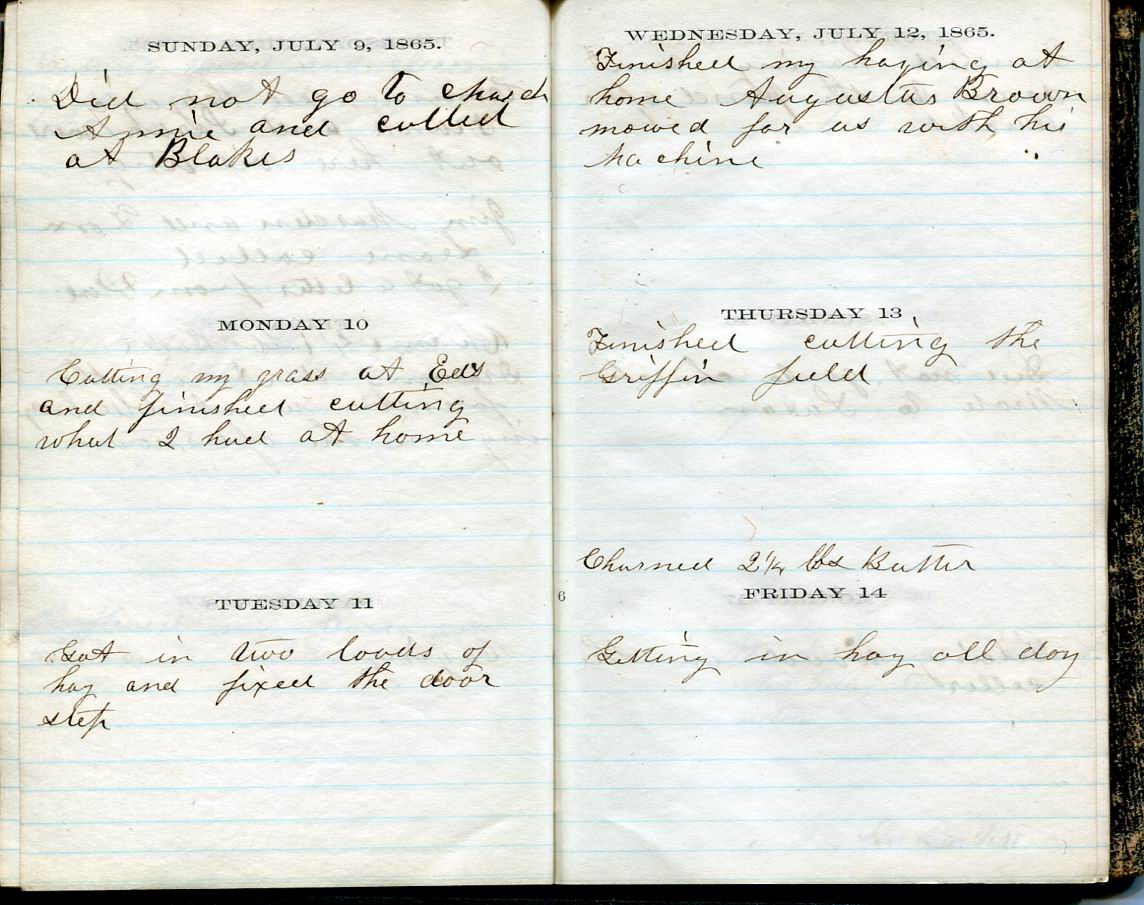 SUNDAY, JULY 9, 1865.
Did not go to church
Annie and called
at Blakes
MONDAY 10
Cutting my grass at Eds
and finished cutting
what I had at home
TUESDAY 11
Got in two loads of
hay and fixed the door
step
WEDNESDAY, JULY 12, 1865.
Finished my haying at
home Augustus Brown
mowed for us with his
Machine
THURSDAY 13
Finished cutting the
Griffin field
Churned 2¼ lbs Butter
6
FRIDAY 14
Getting in hay all day